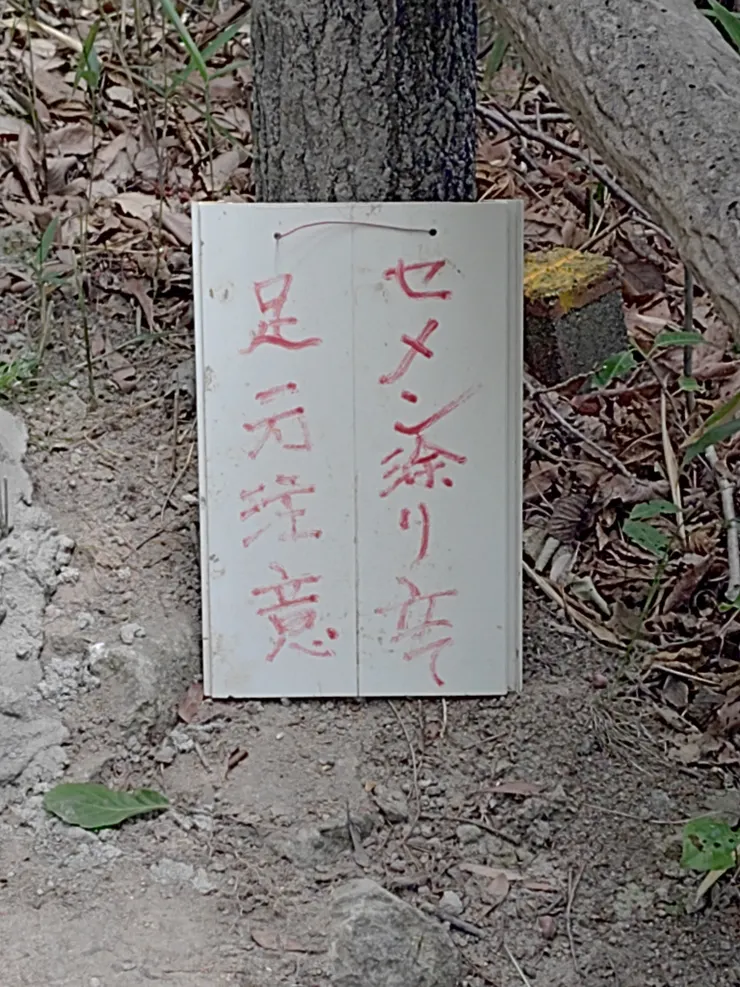 セメン塗り立て
足元注意